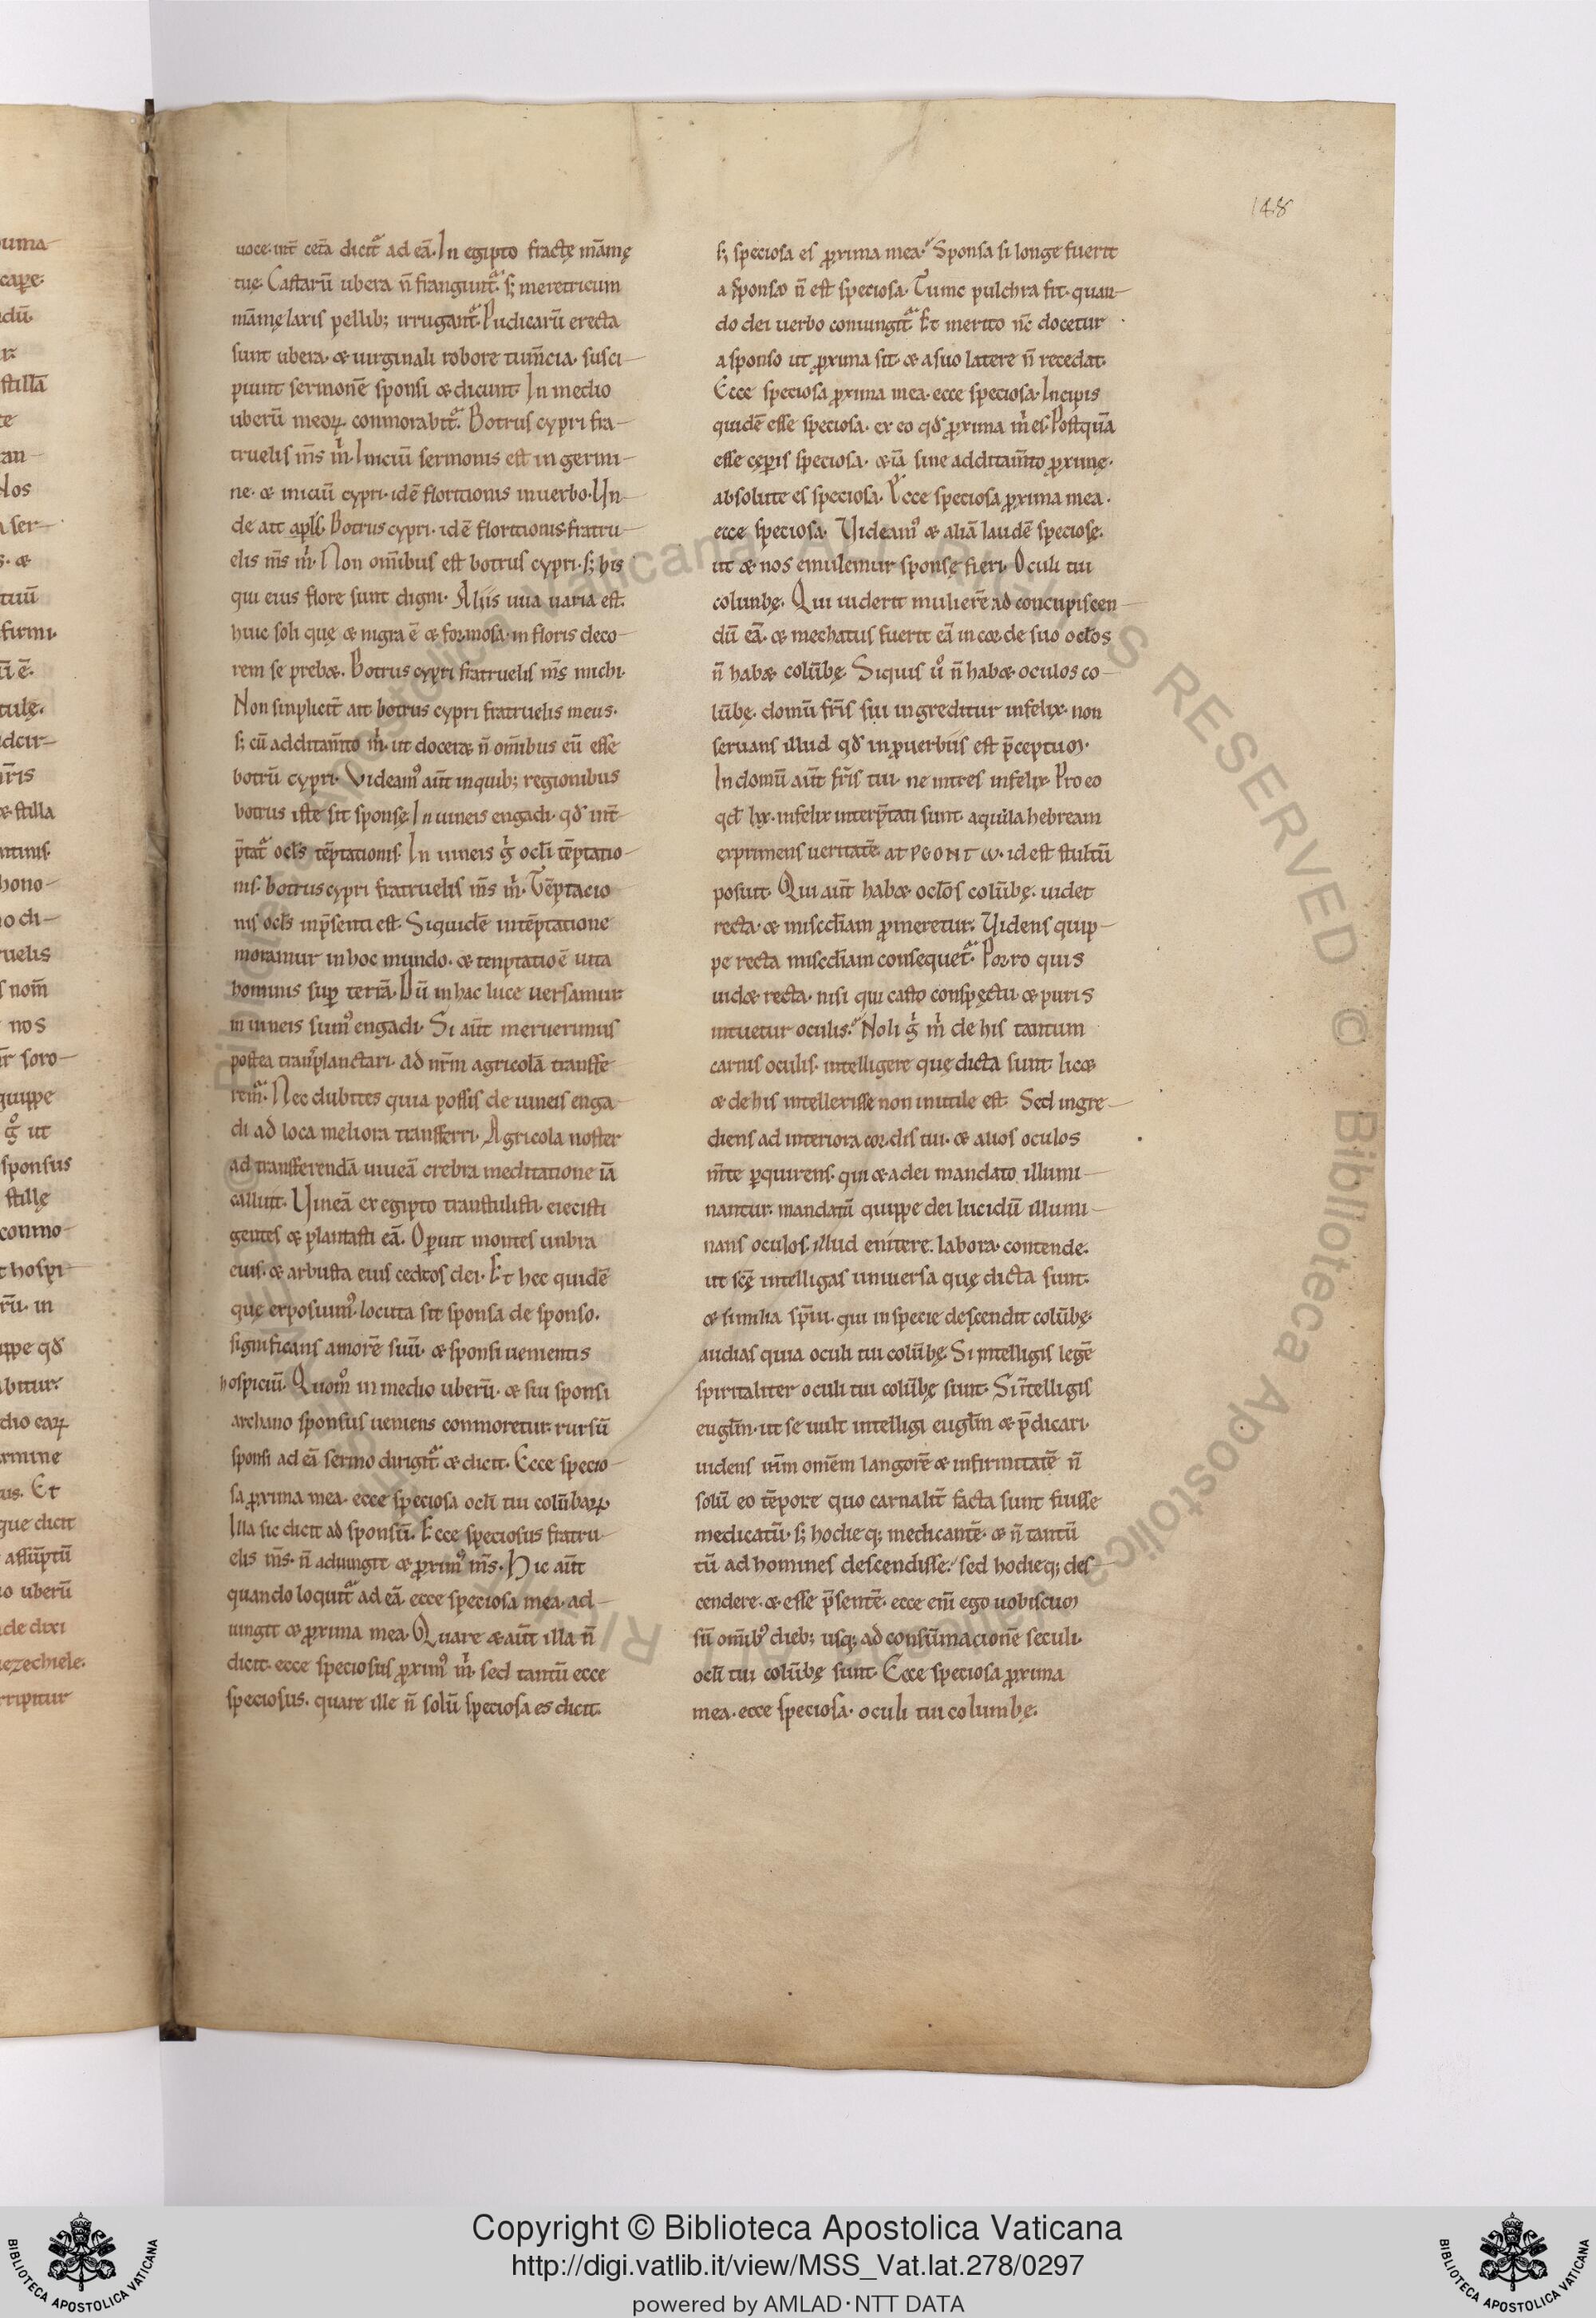 148
uoce. int̄ cetā dicit᷑ ad eā. In egipto fractę māmę
tuę. Castarū ubera n̄ frangunt᷑. s; meretricum
māmę laxis pellib; irrugant᷑. Pudicarū erecta
sunt ubera. & uirginali robore tum̄cia. susci-
piunt sermonē sponsi & dicunt In medio
uberū meoꝝ conmorabit᷑. Botrus cypri fra-
truelis m̄s m̍. Iniciū sermonis est in germi-
ne. & iniciū cypri. idē floritionis in uerbo. Un-
de ait apls̄ Botrus cypri. idē floritionis fratru-
elis m̄s m̍. Non om̄ibus est botrus cypri. s; his
qui eius flore sunt digni. Aliis uua uaria est.
huic soli quę & nigra ē & formosa. in floris deco-
rem se preb&. Botrus cypri fratruelis m̄s michi.
Non sinplicit̄ ait botrus cypri fratruelis meus.
s; cū additam̄to m̍. ut doceat n̄ om̄ibus eū esse
botrū cypri. Videamꝰ aūt in quib; regionibus
botrus iste sit sponsę. In uineis engadi. qd̄ int̄-
p̄tat᷑ ocl̄s tēptationis. In uineis g̍ ocl̄i tēptatio-
nis. botrus cypri fratruelis m̄s m̍. Tēptacio-
nis ocl̄s in p̄senti est. Siquidē in tēptatione
moramur in hoc mundo. & tenptatio ē uita
hominis suꝑ terrā. Dū in hac luce uersamur
in uineis sumꝰ engadi. Si aūt meruerimus
postea transplanctari. ad nr̄m agricolā transfe-
remꝰ. Nec dubites quia possis de uineis enga-
di ad loca meliora transferri. Agricola noster
ad transferendā uineā crebra meditatione iā
calluit. Uineā ex egipto transtulisti. eiecisti
gentes & plantasti eā. Oꝑuit montes unbra
eius. & arbusta eius cedros dei. Et hec quidē
quę exposuimꝰ. locuta sit sponsa de sponso.
significans amorē suū. & sponsi uenientis
hospiciū. Quomͦ in medio uberū. & sui sponsi
archano sponsus ueniens conmoretur. rursū
sponsi ad eā sermo dirigit᷑ & dicit. Ecce specio-
sa ꝓxima mea. ecce speciosa ocl̄i tui colūbaꝝ
Illa sic dicit ad sponsū. Ecce speciosus fratru-
elis m̄s. n̄ adiungit & ꝓximꝰ m̄s. Hic aūt
quando loquit᷑ ad eā. ecce speciosa mea. ad-
iungit & ꝓxima mea. Quare & aūt illa n̄
dicit. ecce speciosus ꝓximꝰ m̍. sed tantū ecce
speciosus. quare ille n̄ solū speciosa es dicit.
s; speciosa es ꝓxima mea. Sponsa si longe fuerit
a sponso n̄ est speciosa. Tunc pulchra fit. quan-
do dei uerbo coniungit᷑ Et merito nc̄ docetur
a sponso ut ꝓxima sit. & a suo latere n̄ recedat.
Ecce speciosa ꝓxima mea. ecce speciosa. Incipis
quidē esse speciosa. ex eo qd̄ ꝓxima m̍ es. Postquā
esse cęꝑis speciosa. & iā sine additam̄to ꝓximę.
absolute es speciosa. Ecce speciosa ꝓxima mea.
ecce speciosa. Uideamꝰ & aliā laudē speciosę.
ut & nos emulemur sponsę fieri. Oculi tui
colunbę. Qui uiderit mulierē ad concupiscen-
dū eā. & mechatus fuerit eā in corde suo ocl̄os
n̄ hab& colūbę. Siquis ūͦ n̄ hab& oculos co-
lūbę. domū fr̄is sui ingreditur infelix. non
seruans illud qd̄ in ꝓuerbiis est p̄ceptum.
In domū aūt fr̄is tui. ne intres infelix. Pro eo
qd̄ lxx. infelix interp̄tati sunt. aquila hebream
exprimens ueritatē. at PEONTW. id est stultū
posuit. Qui aūt hab& ocl̄os colūbę. uidet
recta. & miscd̄iam ꝓmeretur. Uidens quip-
pe recta miscd̄iam consequet᷑. Porro quis
uid& recta. nisi qui casto conspectu & puris
intuetur oculis. Noli g̍ m̍ de his tantum
carnis oculis. intelligere quę dicta sunt. lic&
& de his intellexisse non inutile est. Sed ingre-
diens ad interiora cordis tui. & alios oculos
m̄te ꝑquirens. qui & a dei mandato illumi-
nantur. mandatū quippe dei lucidū illumi-
nans oculos. illud enitere. labora. contende.
ut scē intelligas uniuersa quę dicta sunt.
& similia sp̄iu. qui in specie descendit colūbę.
audias quia oculi tui colūbę. Si intelligis legē
spiritaliter oculi tui colūbę sunt. Si īntelligis
euglm̄. ut se uult intelligi euglm̄ & p̄dicari.
uidens ih̄m om̄em langorē & infirmitatē n̄
solū eo tēpore quo carnalit̄ facta sunt fuisse
medicatū. s; hodieq; medicantē. & n̄ tantū
tū ad homines descendisse. sed hodieq; des-
cendere. & esse p̄sentē. ecce em̄ ego uobiscum
sū om̄ibꝰ dieb; usq; ad consūmacionē seculi.
ocl̄i tui colūbę sunt. Ecce speciosa ꝓxima
mea. ecce speciosa. oculi tui columbę.
Copyright © Biblioteca Apostolica Vaticana
http://digi.vatlib.it/view/MSS_Vat.lat.278/0297
powered by AMLAD·NTT DATA